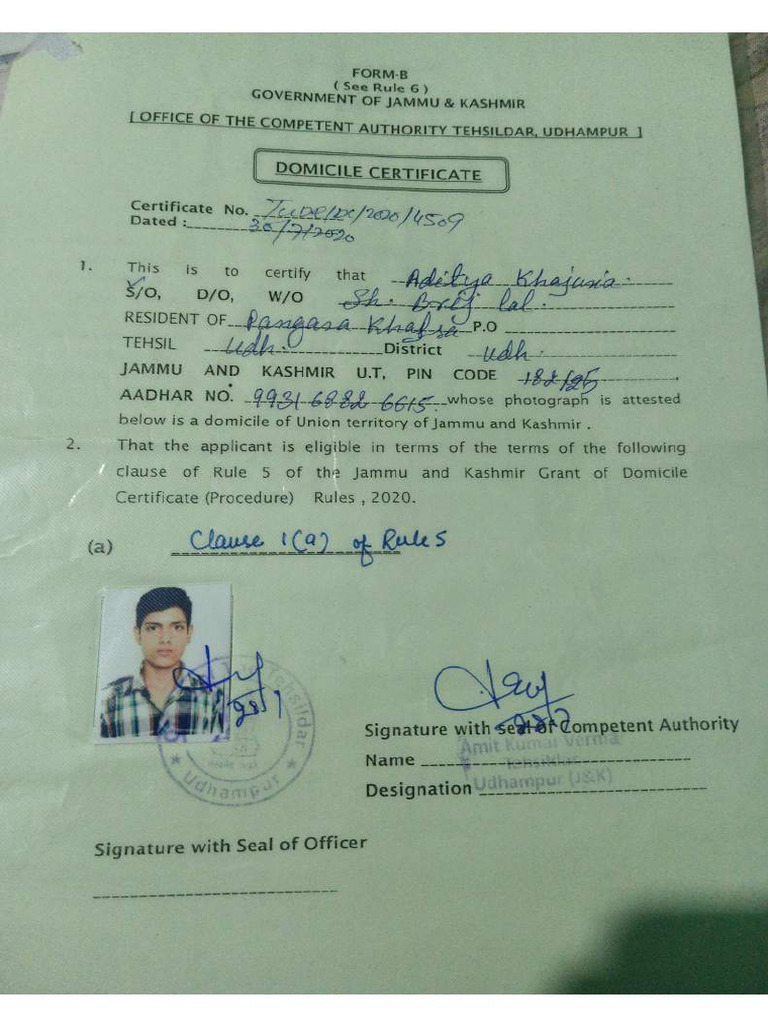 FORM-B
( See Rule 6 )
GOVERNMENT OF JAMMU & KASHMIR
[ OFFICE OF THE COMPETENT AUTHORITY TEHSILDAR, UDHAMPUR ]
DOMICILE CERTIFICATE
Certificate No. /2020/4509
Dated : 30/7/2020
1. This is to certify that Aditya Khajuria.
S/O, D/O, W/O Sh. Brij lal.
RESIDENT OF Pangara P.O
TEHSIL Udh. District Udh.
JAMMU AND KASHMIR U.T, PIN CODE 182125.
AADHAR NO. 9931 6882 6615. whose photograph is attested
below is a domicile of Union territory of Jammu and Kashmir .
2. That the applicant is eligible in terms of the terms of the following
clause of Rule 5 of the Jammu and Kashmir Grant of Domicile
Certificate (Procedure) Rules , 2020.
(a) Clause 1(a) of Rule 5
Tehsildar
Udhampur
Signature with seal of Competent Authority
Amit Kumar Verma
Name
Tehsildar
Udhampur (J&K)
Designation
Signature with Seal of Officer